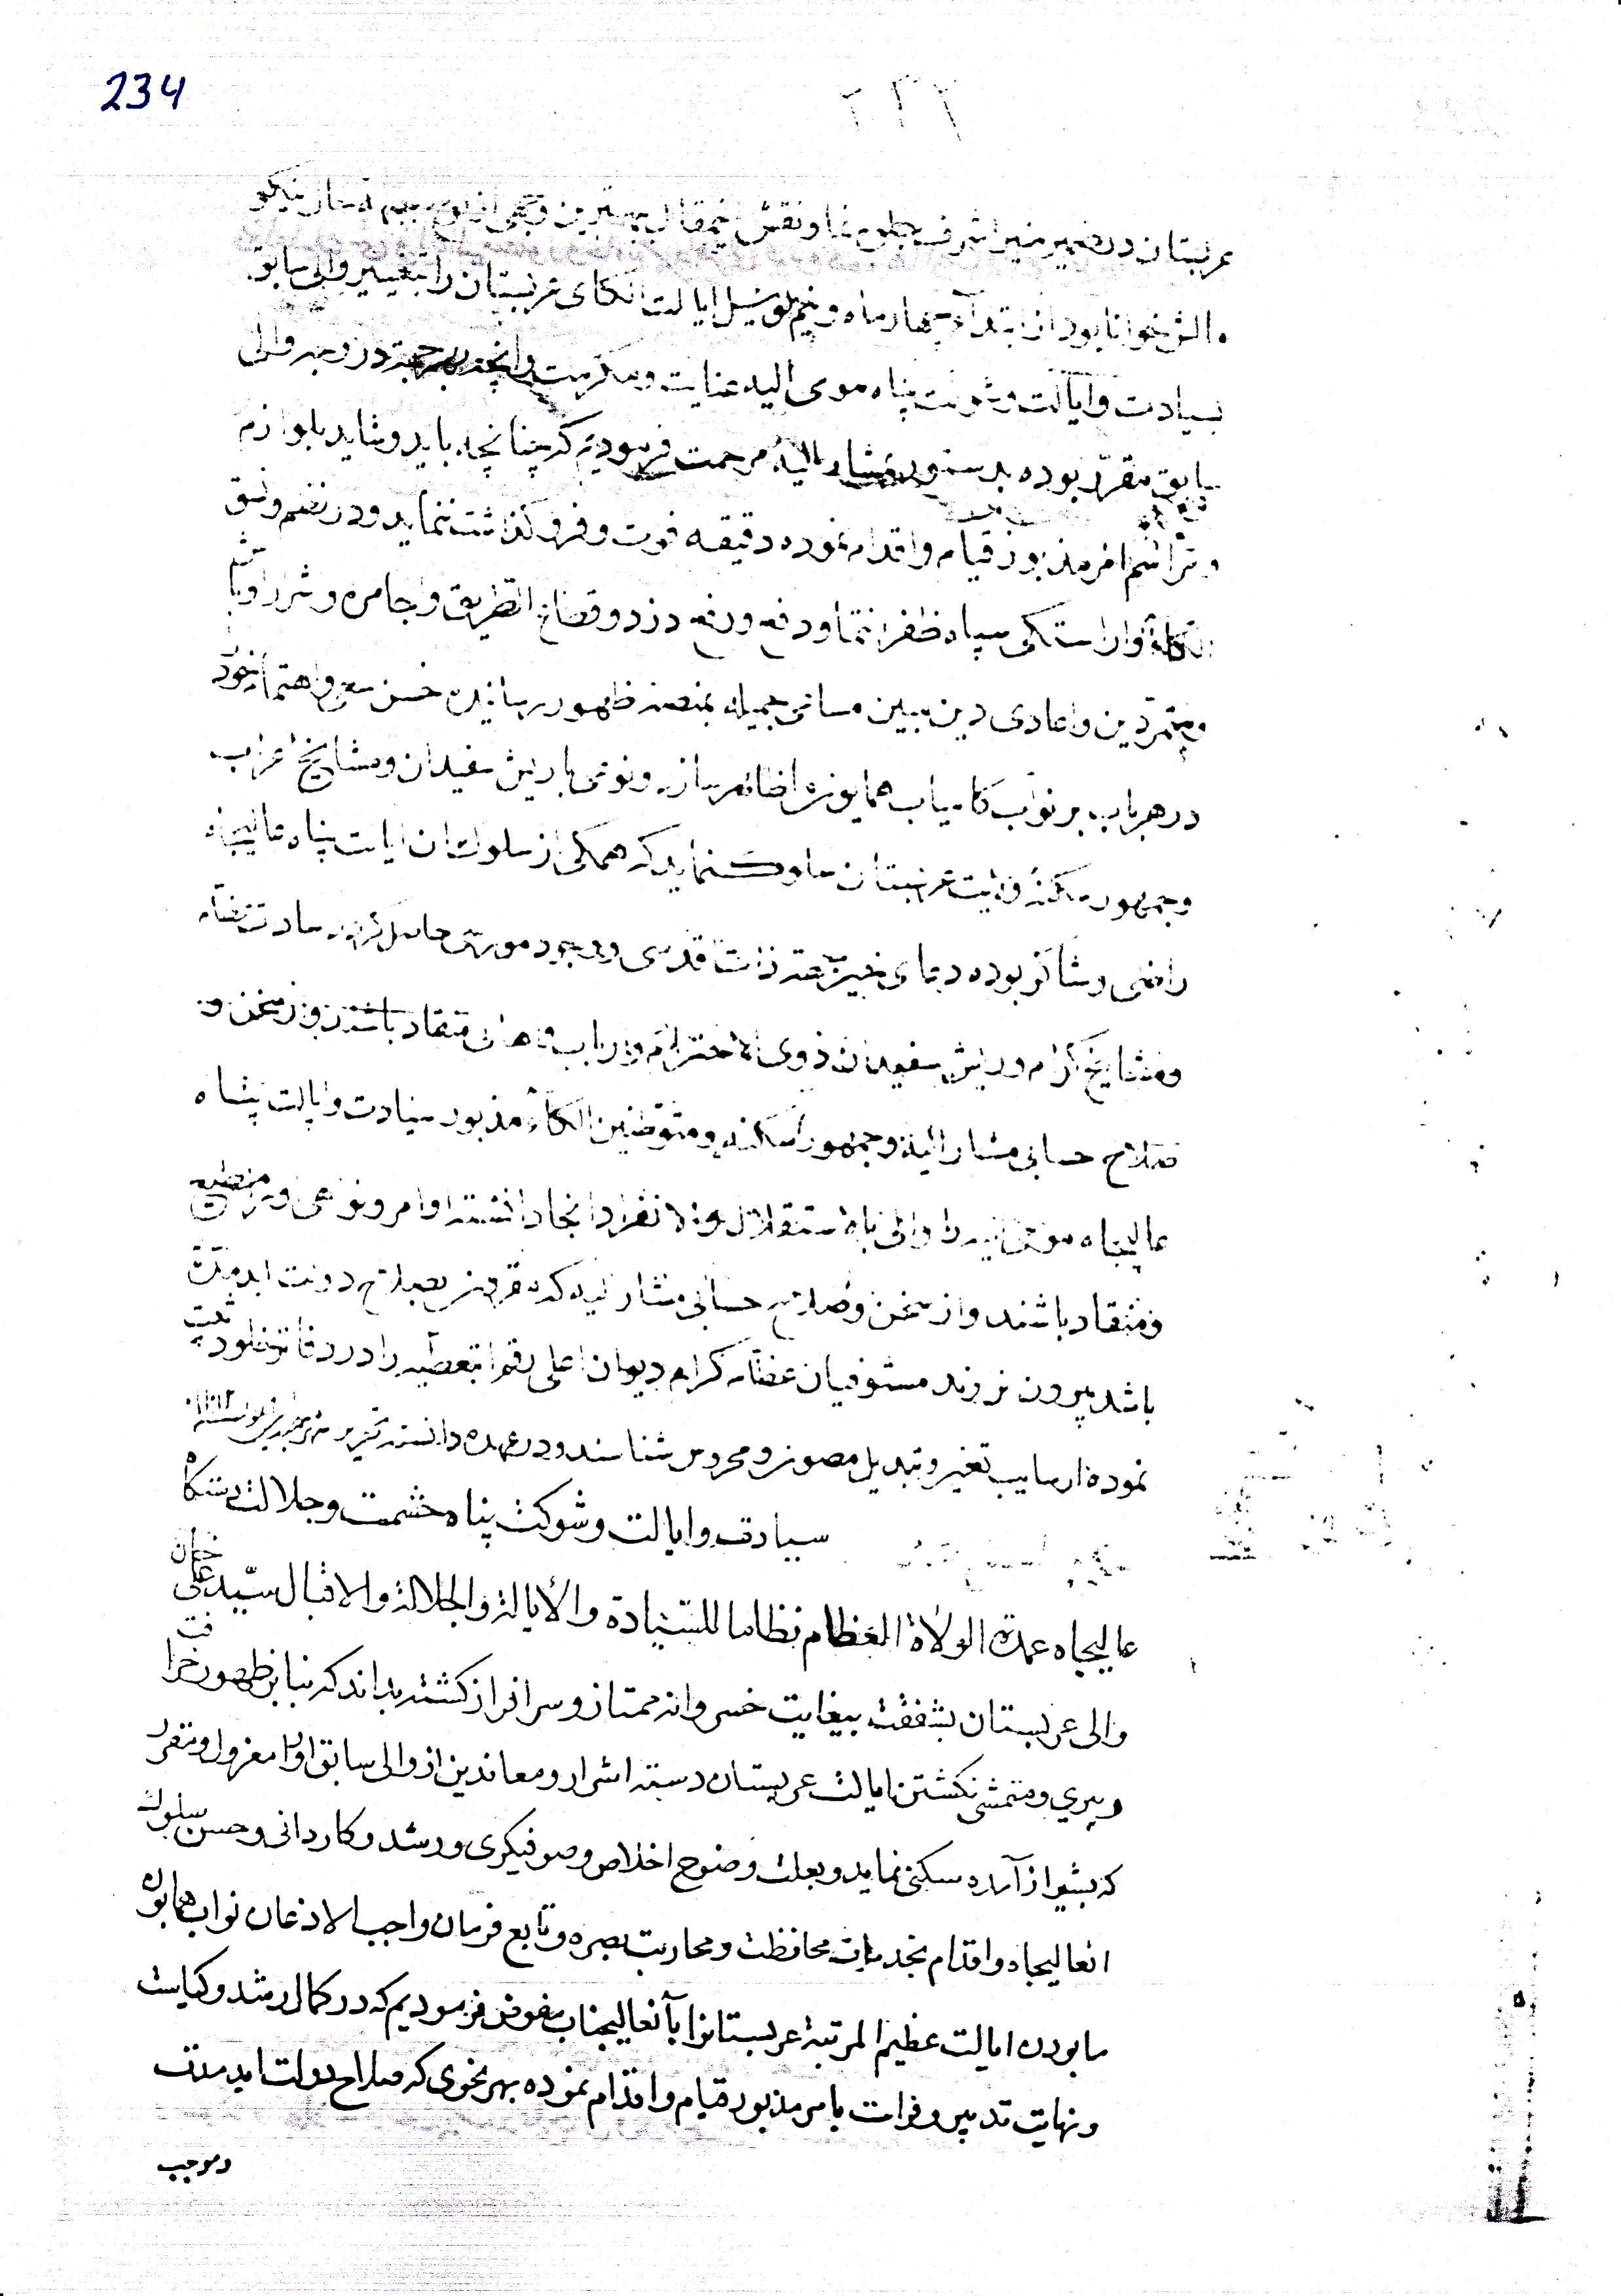 234
عربستان در ضمیر منیر اشرف و نقش
بود از ابتداء چهار ماهه ایالت الکای عربستان را بتغییر والی سابق
بسیادت و ایالت و شوکت پناه مومی الیه عنایت و مکرمت و آنچه بهرجهة در وجه والی
سابق مقرر بوده بدستور بمشار الیه مرحمت فرمودیم که چنانچه باید و شاید بلوازم
و مراسم امر مذبور قیام و اقدام نموده دقیقه فوت و فروکذاشت ننماید و در نظم و نسق
الکاء و اراستکی سپاه ظفر انتما و دفع و رفع دزد و قطاع الطریق و اجامره و شرر
و متمردین و اعادی دین مبین مساعی جمیله بمنصه ظهور رسانیده حسن سعی و اهتمام خود
در هر باب بر نواب کامیاب همایون ظاهر سازد و نوعی با ریش سفیدان و مشایخ اعراب
و جمهور سکنه ولایت عربستان سلوک نماید که همکی از سلوک ان ایالت پناه عالیجاه
راضی و شاکر بوده دعای خیر جهت ذات اقدس حاصل سادات
و مشایخ کرام و ریش سفیدان ذوی الاحترام و اعراب منقاد باشند و از سخن و
صلاح حسابی مشار الیه و جمهور سکنه و متوطنین الکاء مذبور سیادت و ایالت پناه
عالیجاه مومی الیه را والی بالاستقلال و الانفراد انجا دانسته اوامر و نواهی ویرا مطیع
و منقاد باشند و از سخن و صلاح حسابی مشار الیه که مقرون بصلاح دولت ابد مدت
باشد بیرون نروند مستوفیان عظام کرام دیوان اعلی رقم این عطیه را در دفاتر خلود ثبت
نموده از شایب تغیر و تبدیل مصون و محروس شناسند و در عهده دانسته تحریر
سیادت و ایالت و شوکت پناه حشمت و جلالت دستکاه
عالیجاه عمدة الولاة العظام نظاما للسیادة والأیالة والجلالة والاقبال سید علی خان
والی عربستان بشفقت بیغایت خسروانه ممتاز و سرافراز کشته بداند که بنابر ظهور خرافت
و پیری و متمشی نکشتن ایالت عربستان دسته اشرار و معاندین از والی سابق او را معزول و مقرر
که بشیراز آمده سکنی نماید و بعلت وضوح اخلاص و صوفیکری و رشد و کاردانی و حسن سلوک
انعالیجاه و اقدام بخدمات محافظت و محاربت بصره و تابع فرمان واجب الاذعان نواب همایون
ما بودن ایالت عظیم المرتبة عربستانرا بآنعالیجناب مفوض فرمودیم که در کمال رشد و کیاست
و نهایت تدبیر و فراست بامر مذبور قیام و اقدام نموده بهر نحوی که صلاح دولت ابد مدت
و موجب